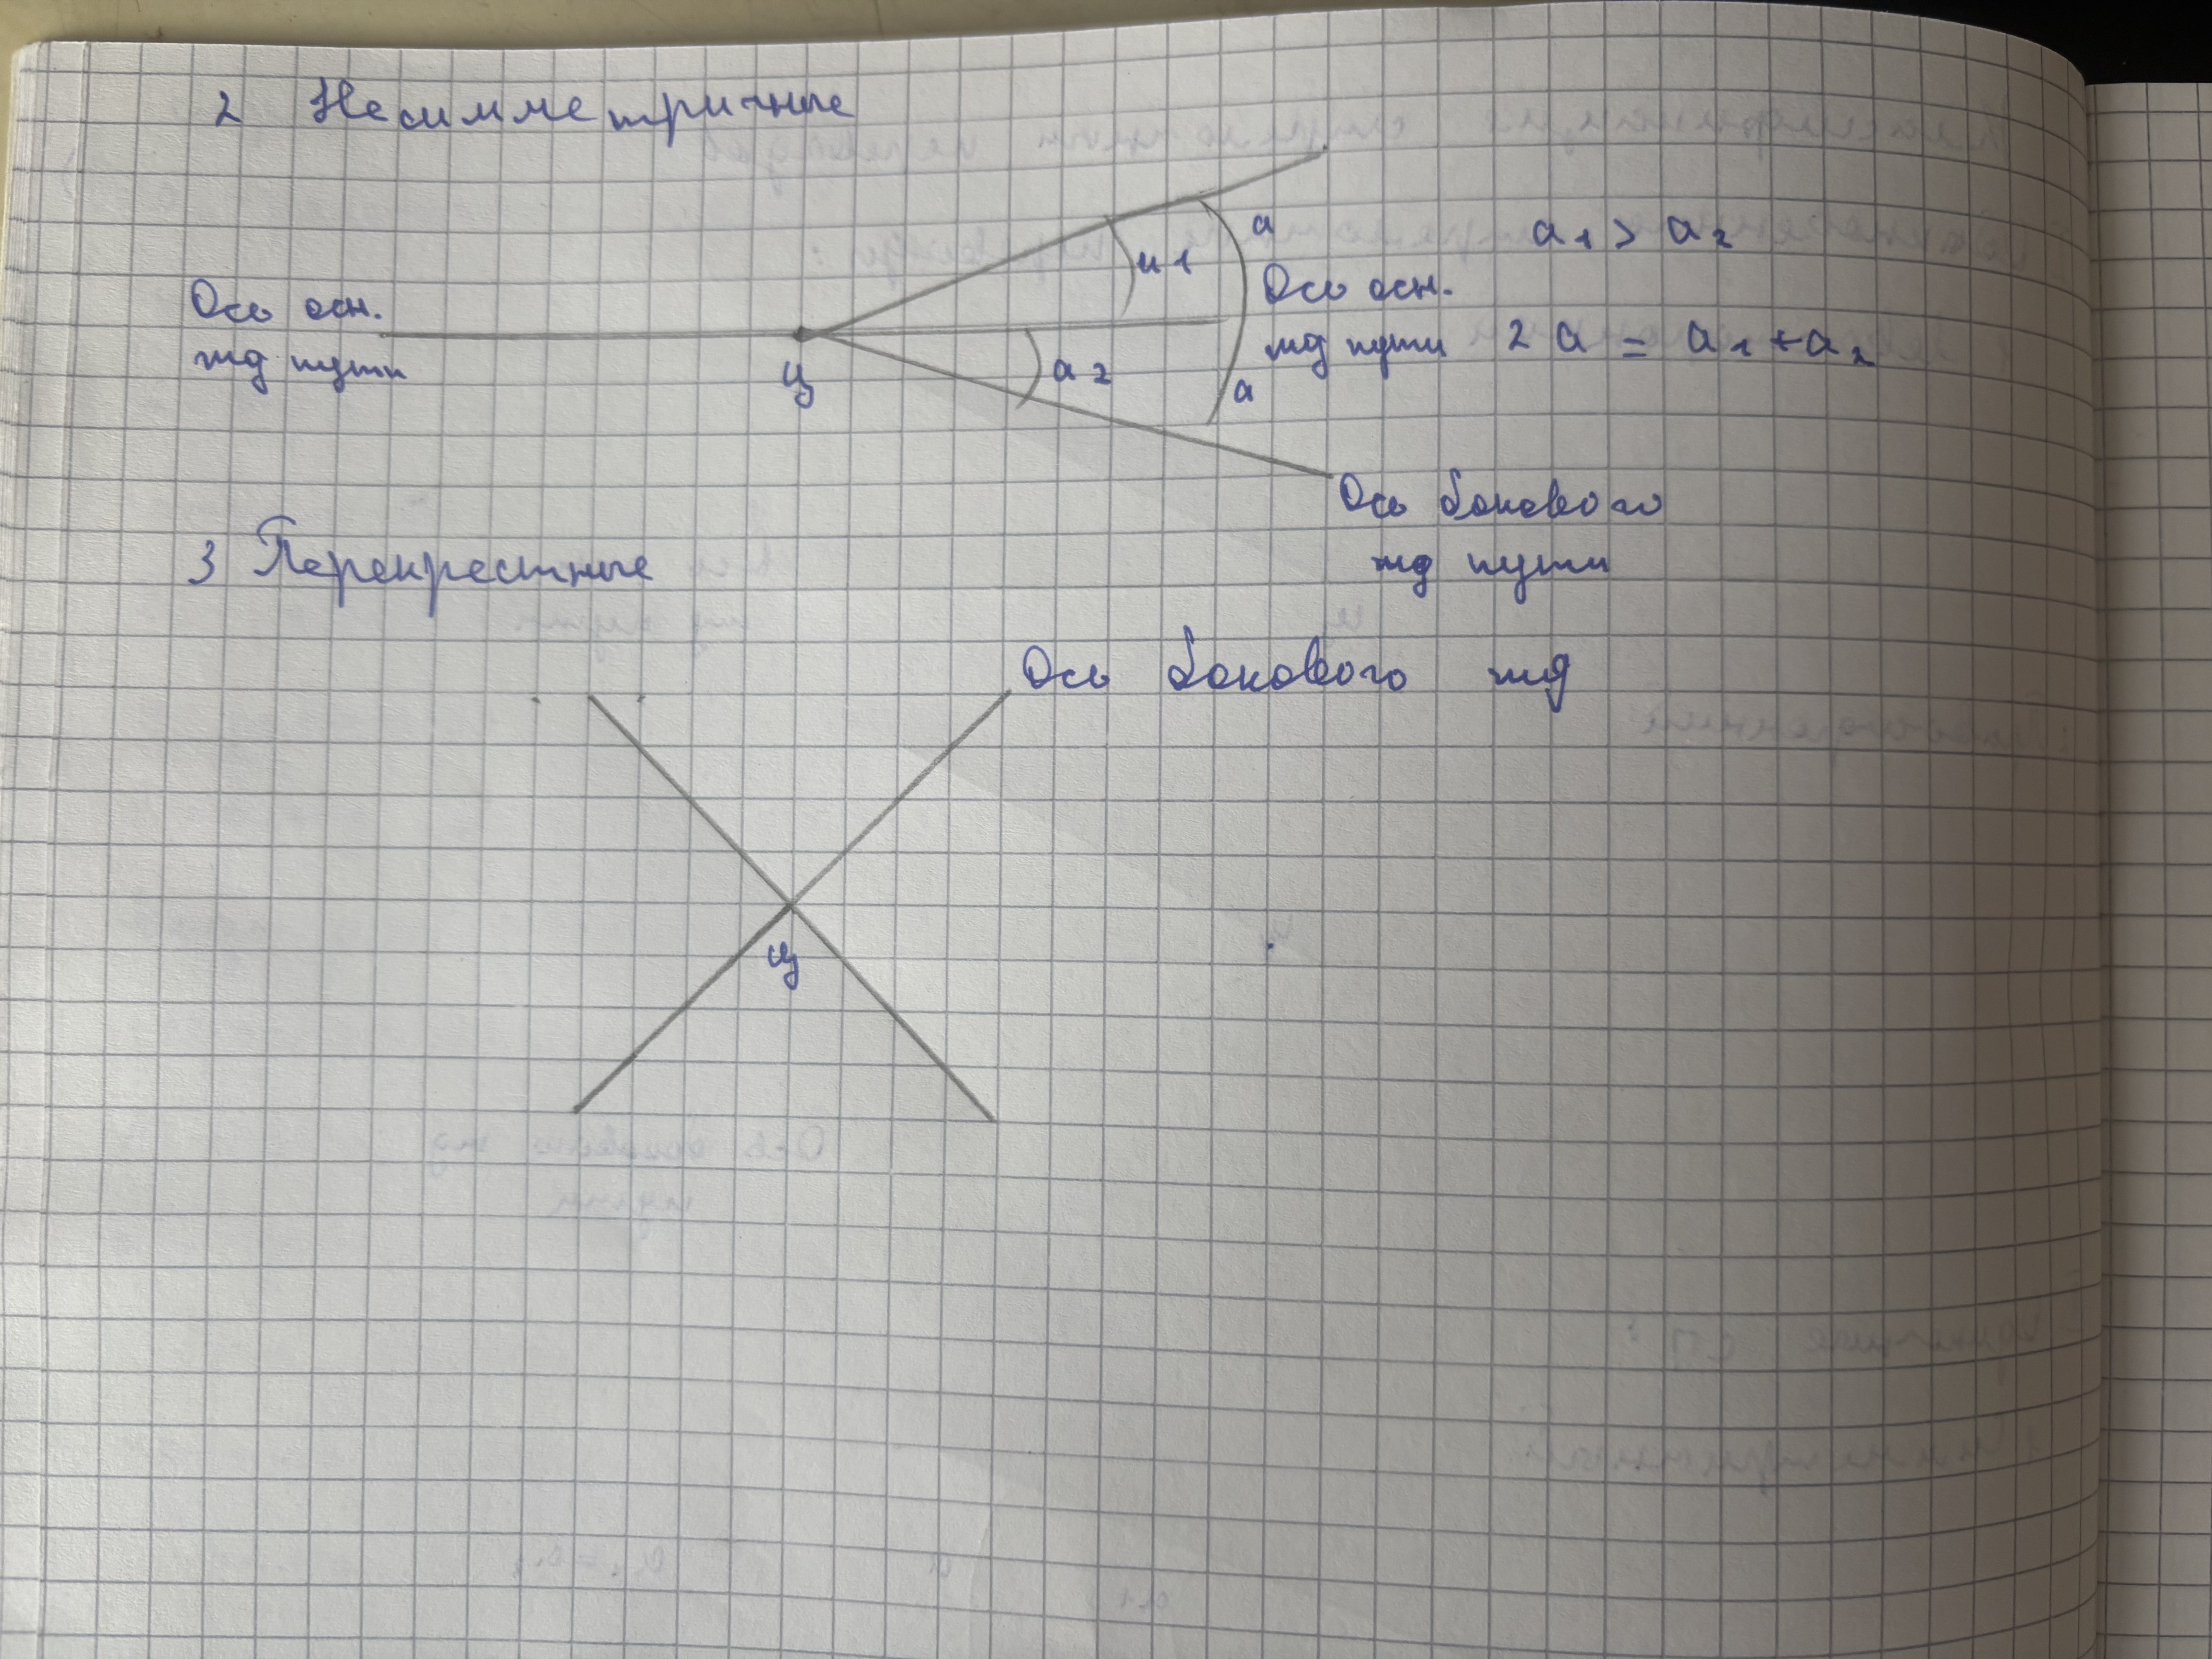 2 Несимметричные
a
a1 > a2
a1
Ось осн.
жд пути
Ось осн.
жд пути
2a = a1 + a2
ц
a2
a
Ось бокового
жд пути
3 Перекрестные
Ось бокового жд
ц